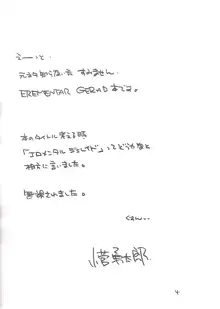 えーっと…
元ネタ知らない方 すみません。
EREMENTAR GERAD 本です。
本のタイトル考える時
「エロメンタル ジェレイド」ってどうかなと
相方に言いました。
無視されました。
くすん…
小菅勇太郎
4